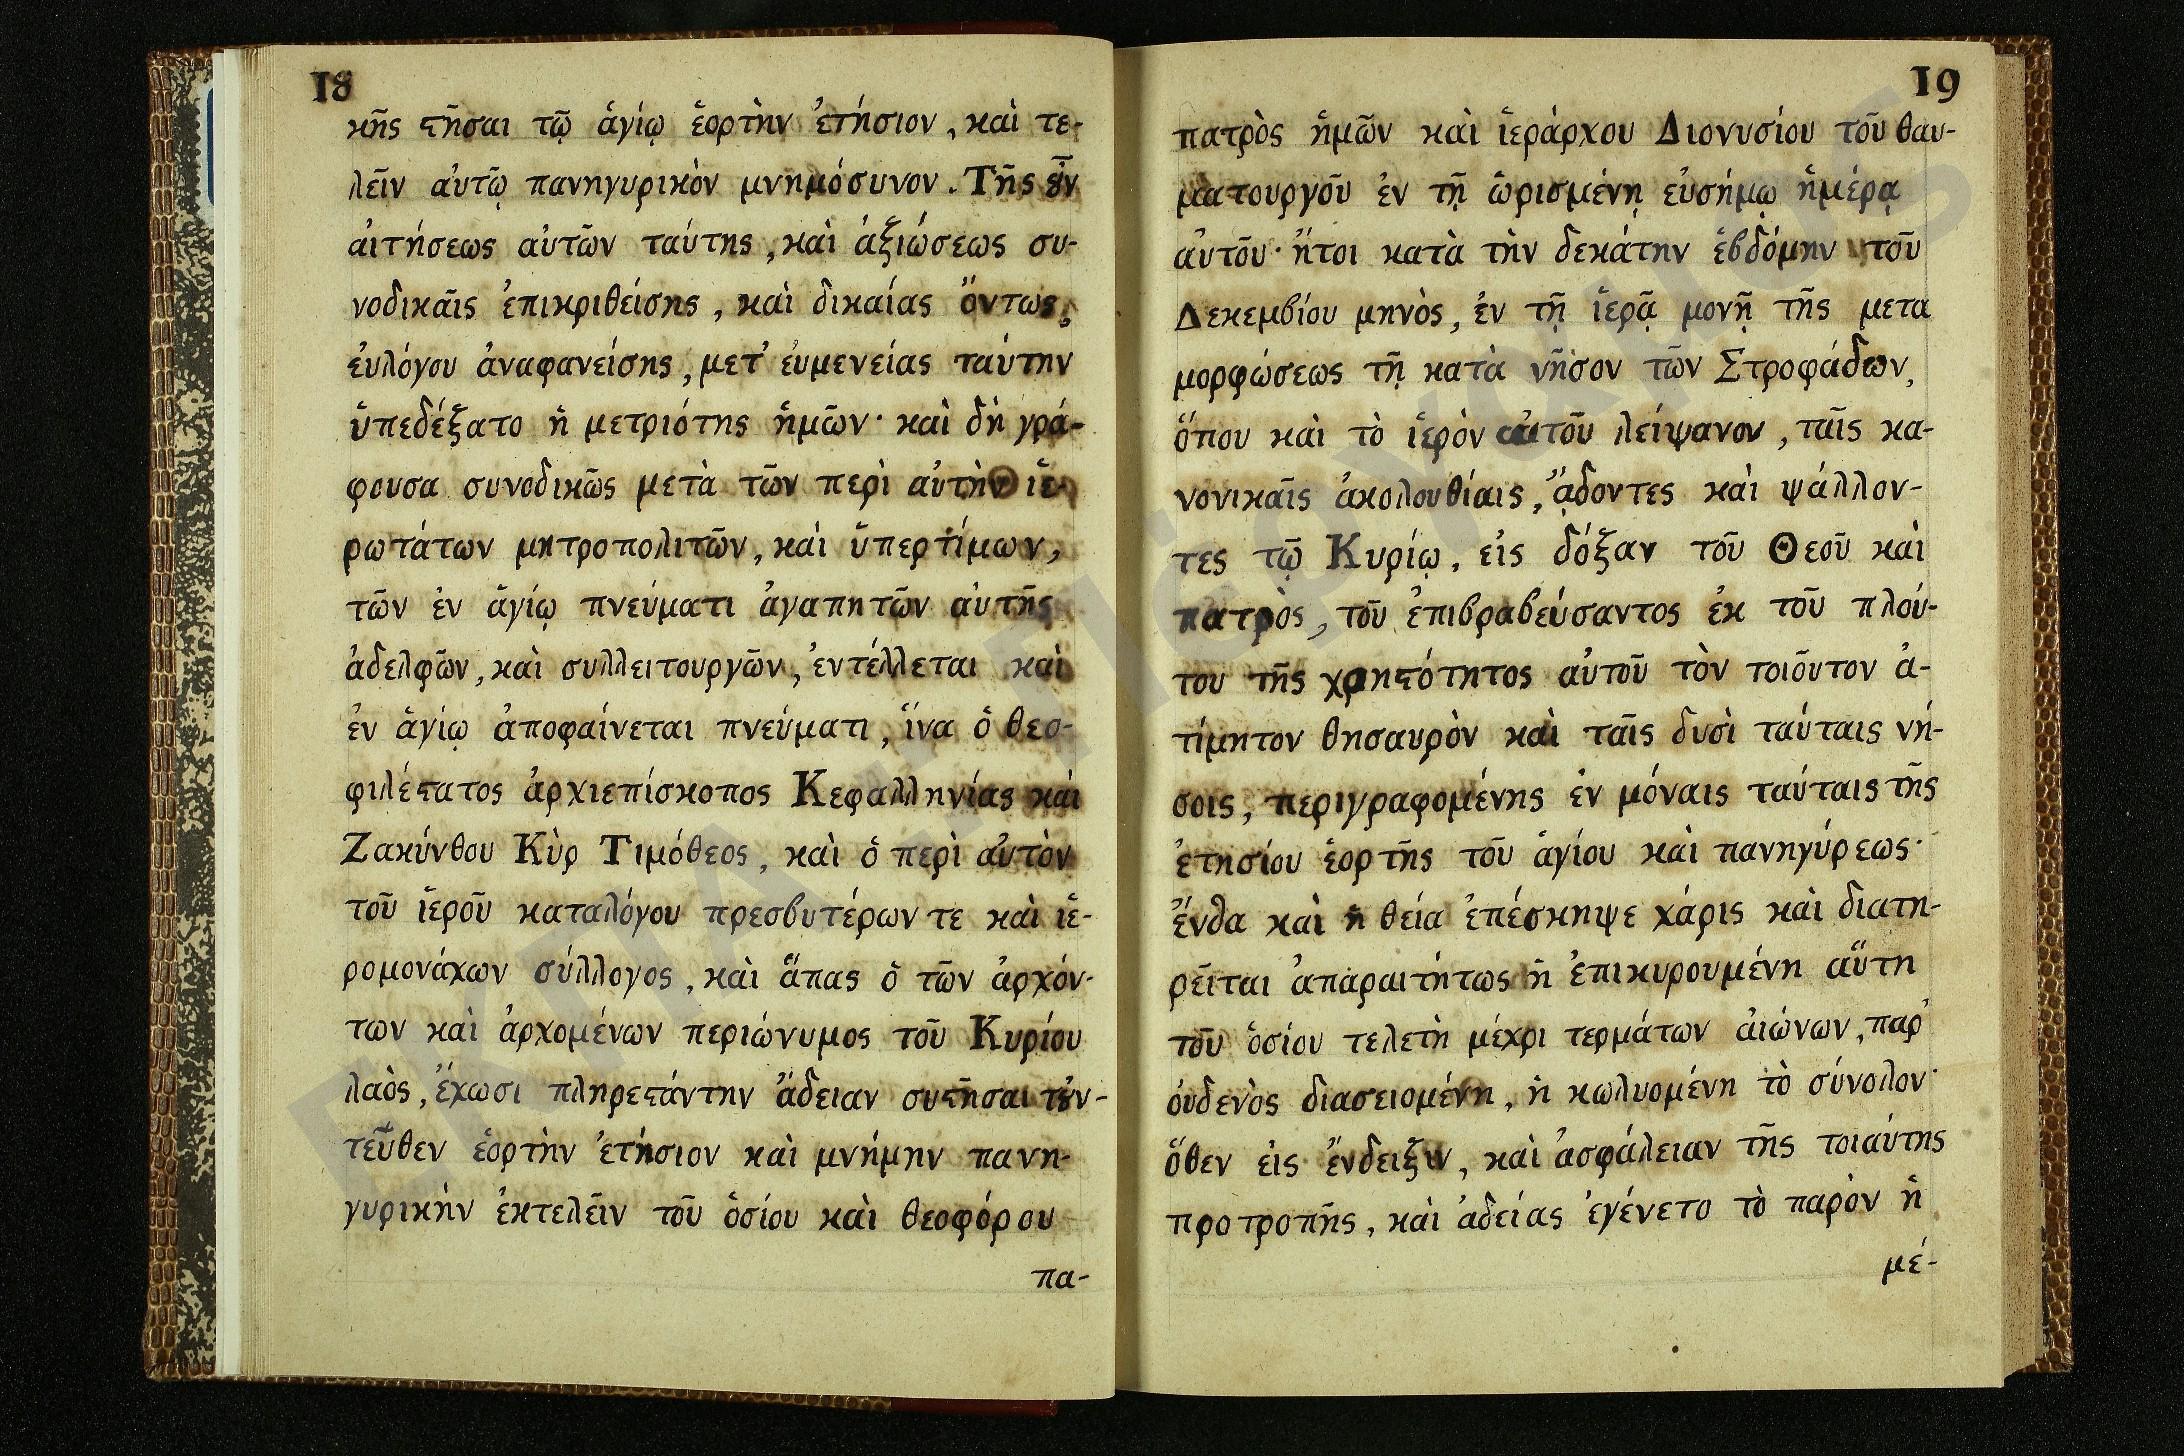 18
κῆς ϛῆσαι τῷ ἁγίῳ ἑορτὴν ἐτήσιον, καὶ τε-
λεῖν αὐτῷ πανηγυρικὸν μνημόσυνον. Τῆς ȣ̓͂ν
αἰτήσεως αὐτῶν ταύτης, καὶ ἀξιώσεως συ-
νοδικαῖς ἐπικριθείσης, καὶ δικαίας ὄντως,
εὐλόγου ἀναφανείσης, μετ' εὐμενείας ταύτην
ὑπεδέξατο ἡ μετριότης ἡμῶν· καὶ δὴ γρά-
φουσα συνοδικῶς μετὰ τῶν περὶ αὐτὴν ἱε-
ρωτάτων μητροπολιτῶν, καὶ ὑπερτίμων,
τῶν ἐν ἁγίῳ πνεύματι ἀγαπητῶν αὐτῆς
ἀδελφῶν, καὶ συλλειτουργῶν, ἐντέλλεται καὶ
ἐν ἁγίῳ ἀποφαίνεται πνεύματι, ἵνα ὁ θεο-
φιλέϛατος ἀρχιεπίσκοπος Κεφαλληνίας καὶ
Ζακύνθου Κὺρ Τιμόθεος, καὶ ὁ περὶ αὐτὸν
τοῦ ἱεροῦ καταλόγου πρεσβυτέρων τε καὶ ἱε-
ρομονάχων σύλλογος, καὶ ἅπας ὁ τῶν ἀρχόν-
των καὶ ἀρχομένων περιώνυμος τοῦ Κυρίου
λαὸς, ἔχωσι πληρεϛάντην ἄδειαν συϛῆσαι τȣ̓ν-
τεῦθεν ἑορτὴν ἐτήσιον καὶ μνήμην πανη-
γυρικὴν ἐκτελεῖν τοῦ ὁσίου καὶ θεοφόρου
πα-
19
πατρὸς ἡμῶν καὶ ἱεράρχου Διονυσίου τοῦ θαυ-
ματουργοῦ ἐν τῇ ὡρισμένῃ εὐσήμῳ ἡμέρᾳ
αὐτοῦ· ἤτοι κατὰ τὴν δεκάτην ἑβδόμην τοῦ
Δεκεμβίου μηνὸς, ἐν τῇ ἱερᾷ μονῇ τῆς μετα
μορφώσεως τῇ κατὰ νῆσον τῶν Στροφάδων,
ὅπου καὶ τὸ ἱερὸν αὐτοῦ λείψανον, ταῖς κα-
νονικαῖς ἀκολουθίαις, ᾄδοντες καὶ ψάλλον-
τες τῷ Κυρίῳ, εἰς δόξαν τοῦ Θεοῦ καὶ
πατρὸς, τοῦ ἐπιβραβεύσαντος ἐκ τοῦ πλού-
του τῆς χρηϛότητος αὐτοῦ τὸν τοιοῦτον ἀ-
τίμητον θησαυρὸν καὶ ταῖς δυσὶ ταύταις νή-
σοις, περιγραφομένης ἐν μόναις ταύταις τῆς
ἐτησίου ἑορτῆς τοῦ ἁγίου καὶ πανηγύρεως·
ἔνθα καὶ ἡ θεία ἐπέσκηψε χάρις καὶ διατη-
ρεῖται ἀπαραιτήτως ἡ ἐπικυρουμένη αὕτη
τοῦ ὁσίου τελετὴ μέχρι τερμάτων αἰώνων, παρ'
οὐδενὸς διασειομένη, ἢ κωλυομένη τὸ σύνολον·
ὅθεν εἰς ἔνδειξιν, καὶ ἀσφάλειαν τῆς τοιαύτης
προτροπῆς, καὶ ἀδείας ἐγένετο τὸ παρὸν ἡ
μέ-